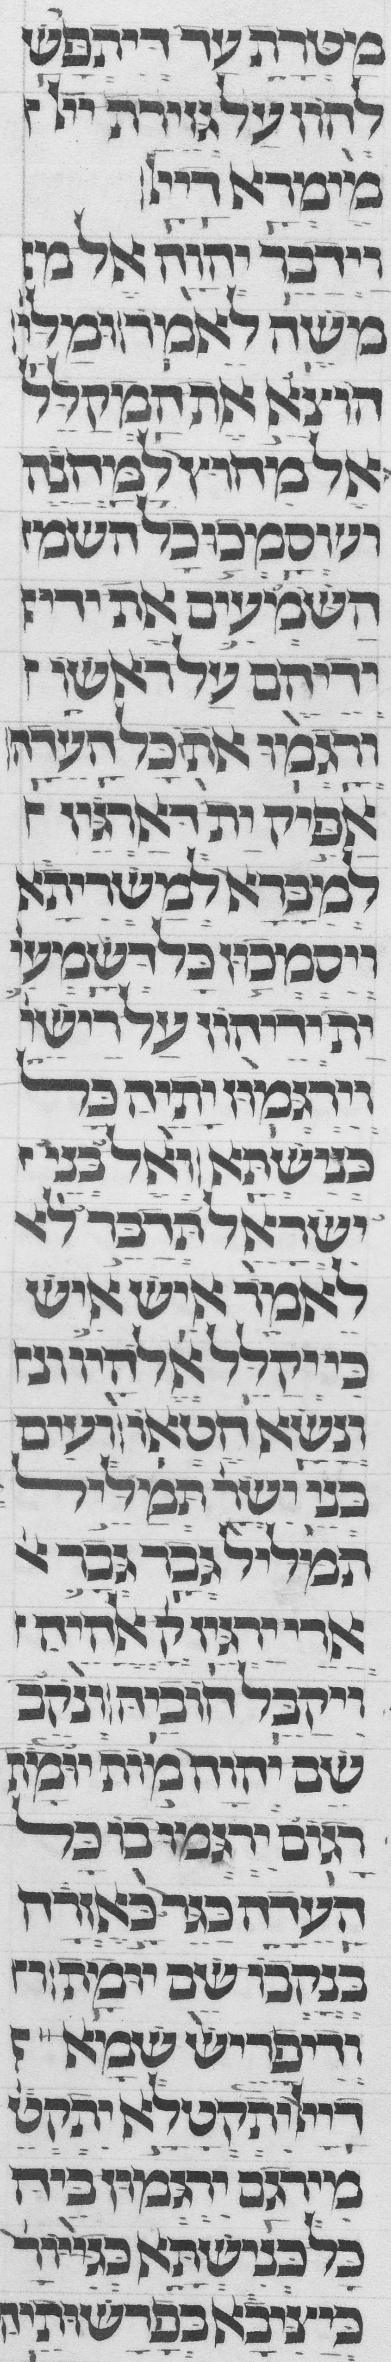 מטרת עד דיתפש
להון על גזירת ייי
מימרא דייי
וידבר יהוה אל מ
משה לאמר ומלי
הוצא את המקלל
אל מחוץ למחנה
וסמכו כל השמ
השמעים את ידי
ידיהם על ראשו
ורגמו אתו כל העדה
אפיק ית דארגיז
למברא למשריתא
ויסמכון כל דשמעו
ית ידיהון על רישי
וירגמון יתיה כל
כנישתא ואל בני
ישראל תדבר לא
לאמר איש איש
כי יקלל אלהיו ונ
ונשא חטאו ועים
בני ישר תמליל
תמליל גבר גבר א
ארי ירגיז ק אלהיה
ויקבל חוביה ונקב
שם יהוה מות יומת
רגום ירגמו בו כל
העדה כגר כאזרח
בנקבו שם יומת וד
ודיפריש שמא
דייי יתקטלא יתקט
מירגם ירגמון ביה
כל כנישתא כגייור
כיציבא בפרשותיה